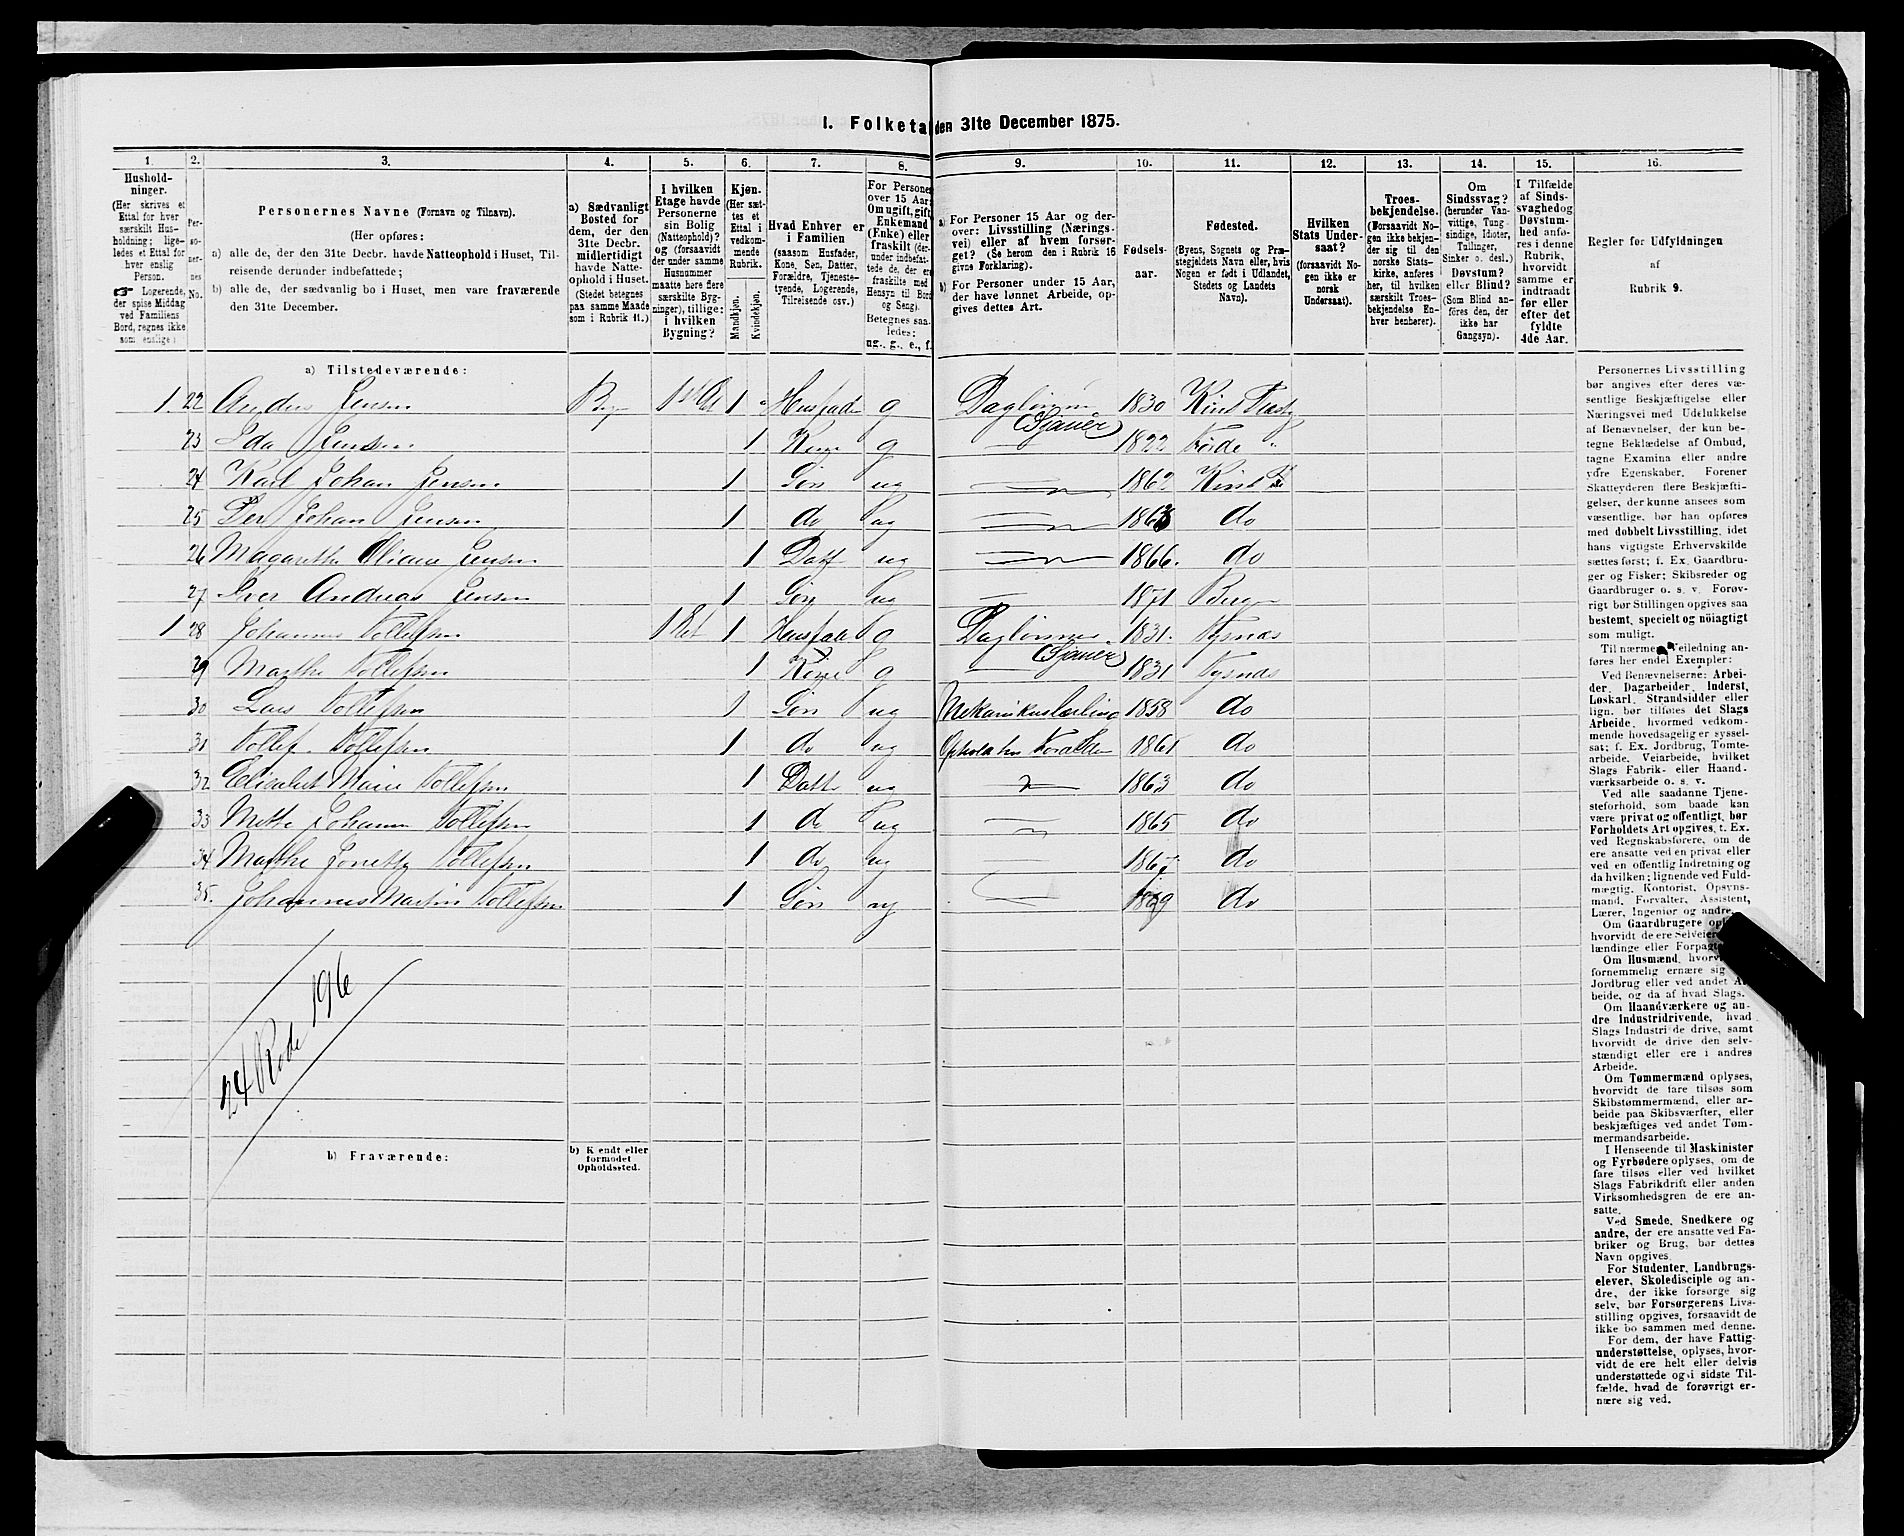 1. Folketal den 31te December 1875.
1. 2. 3. 4. 5. 6. 7. 8. 9. 10. 11. 12. 13. 14. 15. 16.
Hushold-
ninger.
(Her skrives et
Ettal for hver
særskilt Hus-
holdning; lige-
ledes et Ettal for
hver enslig
Person.
☛ Logerende,
der spise Middag
ved Familiens
Bord, regnes ikke
som enslige)
Per-
so-
ner-
nes
No.
Personernes Navne (Fornavn og Tilnavn).
(Her opføres:
a) alle de, der den 31te Decbr. havde Natteophold i Huset, Til-
reisende derunder indbefattede;
b) alle de, der sædvanlig bo i Huset, men vare fraværende
den 31te December.
a) Sædvanligt
Bosted for
dem, der den
31te Decbr.
midlertidigt
havde Natte-
ophold i Huset.
(Stedet betegnes
paa samme Maade
som i Rubrik 11.)
I hvilken
Etage havde
Personerne
sin Bolig
(Natteophold)?
og (forsaavidt
der under samme
Husnummer
maatte høre flere
særskilte Byg-
ninger), tillige:
i hvilken
Bygning?
Kjøn.
(Her sæt-
tes et
Ettal i
vedkom-
mende
Rubrik.
Mandkjøn.
Kvindekjøn.
Hvad Enhver er
i Familien
(saasom Husfader,
Kone, Søn, Datter,
Forældre, Tjeneste-
tyende, Logerende,
Tilreisende osv.)
For Personer
over 15 Aar:
Om ugift, gift,
Enkemand
(Enke) eller
fraskilt (der-
under indbefat-
tede de, der ere
fraskilte med
Hensyn til Bord
og Seng).
Betegnes saa-
ledes:
ug., g., e., f.
a) For Personer 15 Aar og der-
over: Livsstilling (Nærings-
vei) eller af hvem forsør-
get? (Se herom den i Rubrik 16
givne Forklaring).
b) For Personer under 15 Aar,
der have lønnet Arbeide, op-
gives dettes Art.
Fødsels-
aar.
Fødested.
(Byens, Sognets og Præ-
stegjeldets Navn eller, hvis
Nogen er født i Udlandet,
Stedets og Landets
Navn).
Hvilken
Stats Under-
saat?
(forsaavidt No-
gen ikke er
norsk
Undersaat).
Troes-
bekjendelse.
(Forsaavidt No-
gen ikke bekjen-
der sig til den
norske Stats-
kirke, anføres
her, til hvilken
særskilt Troes-
bekjendelse En-
hver henhører).
Om
Sindssvag?
(herunder Van-
vittige, Tung-
sindige, Idioter,
Tullinger,
Sinker o. desl.)
Døvstum?
eller Blind?
(Som Blind an-
føres den, der
ikke har
Gangsyn).
I Tilfælde
af Sinds-
svaghed og
Døvstum-
hed anfø-
res i denne
Rubrik,
hvorvidt
samme er
indtraadt
før eller
efter det
fyldte
4de Aar.
Regler før Udfyldningen
af
Rubrik 9.
a) Tilstedeværende:
1. 22 Anders Jensen 1 Husfader g Daglønner 1830
(Sjauer)
23 Ida Jensen 1 Kone g — 1822 Førde "
24 Karl Johan Jensen 1 Søn ug — 1862 Kind
25 Per Johan Jensen 1 do ug — 1863 do
26 Magarethe Jensen 1 Datt ug — 1866. do
27 Iver Andreas Jensen 1 Søn ug — 1871
1 28 Johannes Tollefsen 1 Et 1 Husfader g Daglønner 1831. Tysnæs
(Sjauer)
29 Marthe Tollefsen 1 Kone g — 1831 Tysnæs
30 Lars Tollefsen 1 Søn ug Mekanikuslærling 1858 do
31 Tollef Tollefsen 1 do ug Ophold hos Forældre 1861 do
32 Elisabet Marie Tollefsen 1 Datt ug — 1863 do
33 Mette Johanne Tollefsen 1 do ug — 1865 do
34 Marthe Tollefsen 1 do ug — 1867 do
35. Johannes Martin Tollefsen 1 Søn ug — do
24 Rode 196
b) Fraværende:
b) Kendt eller
formodet
Opholdssted.
Personernes Livsstilling
bør angives efter deres væ-
sentlige Beskjæftigelse eller
Næringsvei med Udelukkelse
af Benævnelser, der kun be-
tegne Beklædelse af Ombud,
tagne Examina eller andre
ydre Egenskaber. Forener
Skatteyderen flere Beskjæfti-
gelser, der kunne ansees som
væsentlige, bør han opføres
med dobbelt Livsstilling, idet
hans vigtigste Erhvervskilde
sættes først; f. Ex. Gaardbru-
ger og Fisker; Skibsreder og
Gaardbruger o. s. v. Forøv-
rigt bør Stillingen opgives saa
bestemt, specielt og nöiagtigt
som muligt.
Til nærmere Veiledning an-
føres her endel Exempler:
Ved Benævnelserne: Arbei-
der, Dagarbeider, Inderst,
Løskarl, Strandsidder eller
lign. bør tilføies det Slags
Arbeide, hvormed vedkom-
mende hovedsagelig er syssel-
sat; f. Ex. Jordbrug, Tomte-
arbeide, Veiarbeide, hvilket
Slags Fabrik- eller Haand-
værksarbeide o. s. v.
Ved alle saadanne Tjene-
steforhold, som baade kan
være privat og offentligt, bør
Forholdets Art opgives, t. Ex.
ved Regnskabsførere, om de
ere ansatte ved en privat eller
ved en offentlig Indretning og
da hvilken; lignende ved Fuld-
mægtig, Kontorist, Opsyns-
mand, Forvalter, Assistent,
Lærer, Ingeniør og andre.
Om Gaardbrugere
hvorvidt de ere Selveiere,
lændinge eller
Om Husmænd,
fornemmelig ernære sig
Jordbrug eller ved andet Ar-
beide, og da af hvad Slags.
Om Haandværkere og an-
dre Industridrivende, hvad
Slags Industri de drive, samt
hvorvidt de drive den selv-
stændigt eller ere i andres
Arbeide.
Om Tømmermænd oplyses,
hvorvidt de fare tilsøs som
Skibstømmermænd, eller ar-
beide paa Skibsværfter, eller
beskjæftiges ved andet Tøm-
mermandsarbeide.
I Henseende til Maskinister
og Fyrbødere oplyses, om de
fare tilsøs eller ved hvilket
Slags Fabrikdrift eller anden
Virksomhedsgren de ere an-
satte.
Ved Smede, Snedkere og
andre, der ere ansatte ved Fa-
briker og Brug, bør dettes
Navn opgives
For Studenter, Landbrugs-
elever, Skoledisciple og an-
dre, der ikke forsørge sig
selv, bør Forsørgerens Livs-
stilling opgives, forsaavidt de
ikke bo sammen med denne.
For dem, der have Fattig-
understøttelse, oplyses, hvor-
vidt de ere helt eller delvis
understøttede og i sidste Til-
fælde, hvad de forøvrigt er-
nære sig ved.